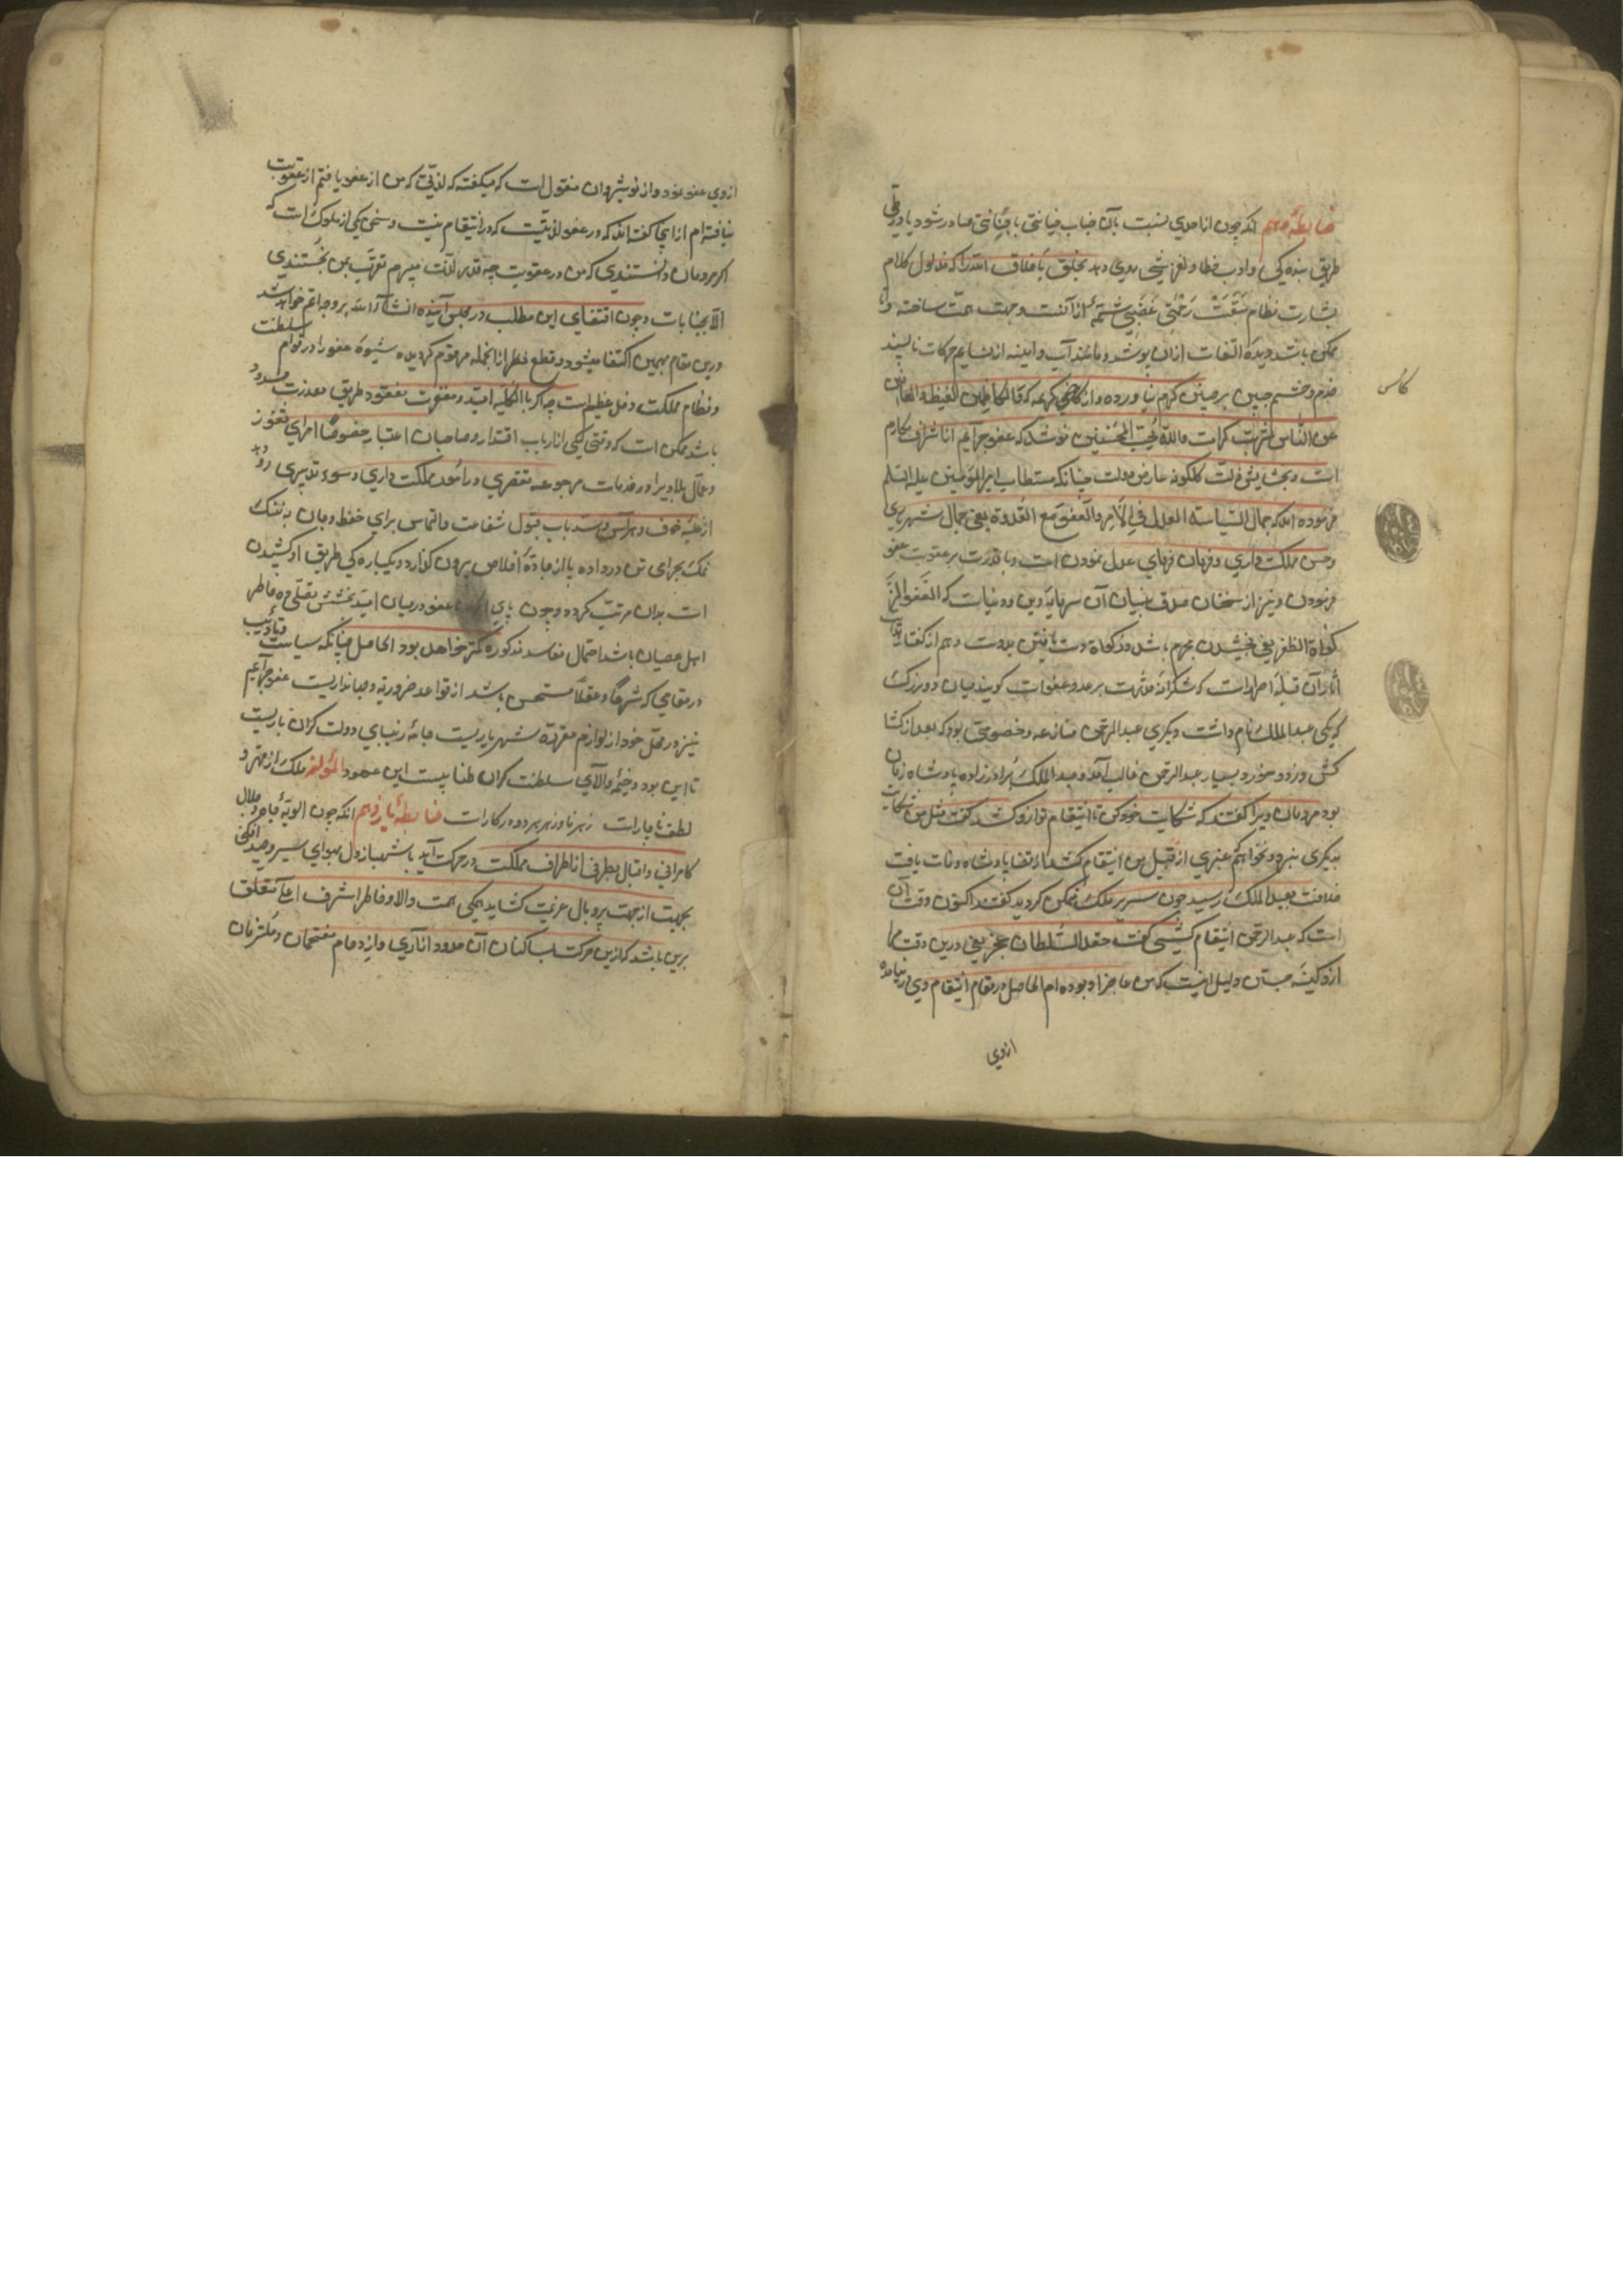 ضابطهٔ دهم آنکه چون از احدی نسبت بآن جناب خیانتی یا جنایتی صادر شود یا در طی
طریق بندگی و ادب خطا و لغزشی روی دهد تخلق باخلاق الله را که مدلول کلام
بشارت نظام سَبَقَتْ رَحْمَتی غَضَبی شمّهٔ از آنست وجهت همّت ساخته تا
ممکن باشد دیدهٔ التفات ازان بپوشد و مانند آب و آیینه از نشایم حرکات ناپسند
خدم و حشم چین بر جبین کرم نیاورده و از کأس کریمه که وَالکاظمین الغیظ والعافین
کأس
عن النّاس شربت کرامت والله یُحبّ المُحسنین نوشد که عفو جرآئم از اشراف مکارم
است و بخشایش زلّت کلکونه عارض دولت چنانکه مستطاب امیرالمؤمنین علیه السّلم
فرموده اند که جمال السّیاسة العدل فی الاَمر والعَفو مَع القُدرة یعنی جمال شهریاری
وحسن مملکت داری و فرمان فرمای عدل نمودن است و با قدرت بر عقوبت عفو
فرمودن و نیز از سخنان صدق بنیان آن سرمایهٔ دین و دنیاست که العَفو
زکوٰة الظفر یعنی بخشیدن مجرم باشد و زکوٰة دست یافتن بدوست و هم از گفتار
آن قبلهٔ احرارست که شکرانهٔ قدرت بر عدو عفوست گویند میان دو بزرگ
که یکی عبدالملک نام داشت و دیگری عبدالرحمن منازعه و خصومتی بود که بعد از کشا
کش و زد و خورد بسیار عبدالرحمن غالب آمد و عبدالملک برادرزاده پادشاه زمان
بود مردمان ویرا گفتند که شکایت خود کن تا انتقام تو ازو کشد گفت مثل من شکایت
بدیگری نبرد و نخواهم غیری از قبل من انتقام کشد از قضا پادشاه وفات یافت
خلافت بعبدالملک رسید چون بر سریر ملک متمکن گردید گفتند اکنون وقت آن
است که عبدالرحمن انتقام کشی گفت حقد السّلطان عجز یعنی درین وقت مرا
ازو کینه جستن دلیل اینست که من عاجز او بوده‌ام الحاصل در مقام انتقام وی در نیامده
ازوی
ازوی عفو نمود و از نوشیروان منقول است که میگفته که لذّتی که من از عفو یافتم از عقوبت
نیافته ام از اینجا گفته اند که در عفو لذّتیست که در انتقام نیست و سخن یکی از ملوک است که
اگر مردمان دانستندی که من در عقوبت چه قدر لذّت میبرم تقرّب بمن نجستندی
الّا بجنایات و چون اقتفای این مطلب در مجلس آینده انشآء الله بر وجه اتم خواهد شد
درین مقام بهمین اکتفا میشود و قطع نظر از آنجمله مرقوم گردیده شیوهٔ عفو را در قوام سلطنت
و نظام مملکت دخل عظیم است چه اگر بالکلّیه امید و مغفرت مفقود و طریق معذرت مسدود
باشد ممکن است که وقتی یکی از ارباب اقتدار و صاحبان اعتبار خصوصاً امرای ثغور
و عمّال بلاد ویرا در خدمات مرجوعه تقصیری و در امور مملکت داری و سوء تدبیری رو دهد
از غلبهٔ خوف و هراس و سدّ باب قبول شفاعت و التماس برای حفظ و جان به ننگ
نمک بحرامی تن در داده پا از جادهٔ اخلاص بیرون گذارد و یکباره کی طریق او کشیدن
است بدان مرتّب گردد و چون پای عفو در میان امید بخشش تسلّی ده خاطر
اهل عصیان باشد احتمال مفاسد مذکوره کمتر خواهد بود الحاصل چنانکه سیاست و تأدیب
در مقامی که شرعاً و عقلاً مستحسن باشد از قواعد ضروریهٔ جهانداریست عفو جرآئم
نیز در محلّ خود از لوازم مقررهٔ شهریاریست جامهٔ زیبای دولت کران باریست
تا این بود و خیمهٔ والای سلطنت کران طنابیست این عمود لمؤلفه ملک را از مهر و
لطف ناچارست زهر نادر زهر هر دو در کارست ضابطهٔ یازدهم آنکه چون الویهٔ جاه و جلال
کامرانی و اقبال بطرفی از اطراف مملکت در حرکت آید یا شهباز دل بهوای سیر و صید افکنی
بجهت از جهت پر و بال عزیمت کشاید همگی همت والا و خاطر اشرف اعلآ متعلق
برین باشد که ازین حرکت بساکنان آن حدود آزاری و از ازدحام ملتزمان